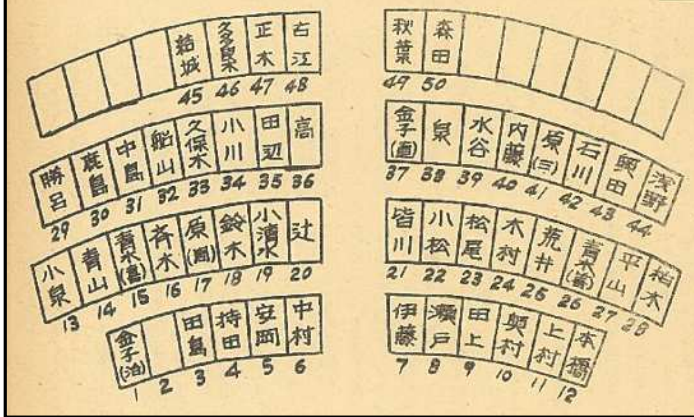 結城 久多見木 正木 古江
45 46 47 48
秋葉 森田
49 50
勝呂 鹿島 中島 船山 久保木 小川 田辺 高
29 30 31 32 33 34 35 36
金子(直) 泉 水谷 内藤 原(三) 石川 奥田 浅野
37 38 39 40 41 42 43 44
小泉 青山 青木(喜) 斉木 原(周) 鈴木 小清水 辻
13 14 15 16 17 18 19 20
皆川 小松 松尾 木村 荒井 青木(富) 平山 柏木
21 22 23 24 25 26 27 28
金子(治) 田島 持田 安岡 中村
1 2 3 4 5 6
伊藤 瀬戸 田上 奥村 上村 本橋
7 8 9 10 11 12